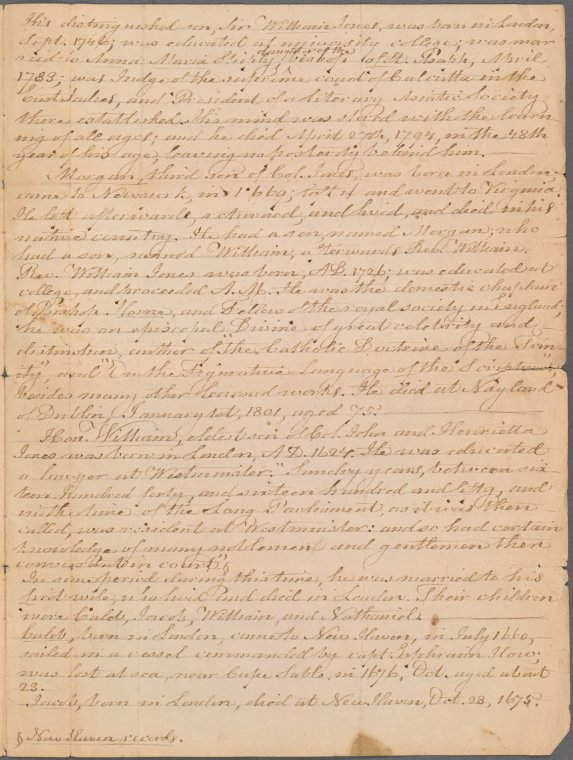 His distinguished son, Sir William Jones, was born in London,
Sept. 1746; was educated at university college; was mar
ried to Anna Maria Shirly, daughter of the
bishop of St. Asaph, April
1783; was Judge of the supreme court of Calcutta in the
East Indies, and President of a literary Asiatic Society
there established. His mind was stored with the learn
ing of all ages; and he died April 27th, 1794, in the 48th
year of his age leaving no posterity behind him.
Morgan, third son of Col. Jones, was born in London
came to Newyork, in 1669; left it and went to Virginia
He left afterwards, returned, and lived, and died in his
native country. He had a son, named Morgan, who
had a son, named William, afterwards Rev. William.
Rev. William Jones was born, AD. 1726; was educated at
college, and proceeded A.M. He was the domestic chaplain
of Bishop Horne, and Fellow of the royal society in England;
he was an episcopal Divine of great celebrity and
distinction, author of "the Catholic Doctrine of the Trin
ity," and "On the Figurative Language of the Scriptures,
besides many other learned works. He died at Nayland
of Dublin, January 1st, 1801, aged 75.
Hon. William, oldest son of Col. John and Henrietta
Jones was born in London, A.D. 1624. He was educated
a lawyer at Westminster. "Sundry years, between six
teen hundred forty, and sixteen hundred and fifty, and
in the time of the Long Parliament, as it was then
called, was resident at Westminster: and so had certain
knowledge of many noblemen and gentlemen then
conversant in court."§
In some period during this time, he was married to his
first wife, who lived and died in London. Their children
were Caleb, Jacob, William, and Nathaniel.
Caleb, born in London, came to New Haven, in July 1660,
sailed in a vessel commanded by capt. Ephraim How;
was lost at sea, near Cape Sable, in 1676, Oct. aged about
23.
Jacob, born in London, died at New Haven, Oct. 28, 1675.
§ New Haven records.